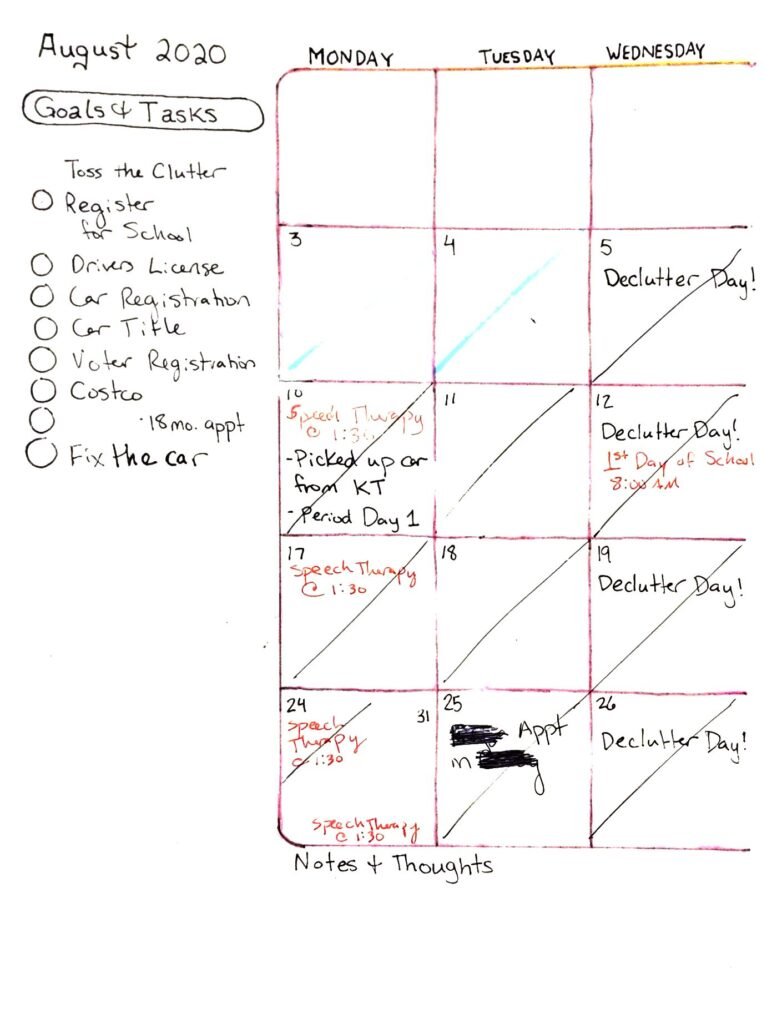 August 2020
MONDAY TUESDAY WEDNESDAY
Goals & Tasks
Toss the Clutter
Register
for School
Drivers License
Car Registration
Car Title
Voter Registration
Costco
· 18 mo. appt
Fix the car
3
4
5
Declutter Day!
10
Speech Therapy
@ 1:30
- Picked up car
from KT
- Period Day 1
11
12
Declutter Day!
1st Day of School
8:00 AM
17
Speech Therapy
@ 1:30
18
19
Declutter Day!
24
Speech
Therapy
@ 1:30
31
Speech Therapy
@ 1:30
25
Appt
26
Declutter Day!
Notes & Thoughts